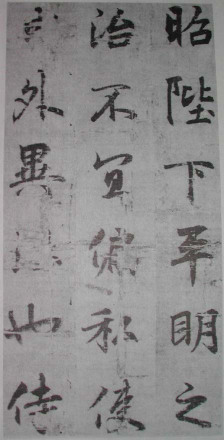 昭陛下平明之
治不宜偏私使
内外異法也侍